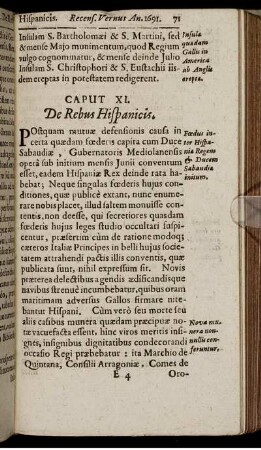 Hispanicis. Recens. Vernus An. 1691. 71
Insulam S. Bartholomæi & S. Martini, sed
& mense Majo munimentum, quod Regium
vulgo cognominatur, & mense deinde Julio
Insulam S. Christophori & S. Eustachii iis-
dem ereptas in potestatem redigerent.
Insula
quædam
Gallis in
America
ab Anglis
erepta.
CAPUT XI.
De Rebus Hispanicis.
POstquam mutuæ defensionis causa in
certa quædam fœdera capita cum Duce
Sabaudiæ, Gubernatoris Mediolanensis
operâ sub initium mensis Junii conventum
esset, eadem Hispaniæ Rex deinde rata ha-
bebat; Neque singulas fœderis hujus condi-
tiones, quæ publicè extant, nunc enume-
rare nobis placet, illud saltem monuisse con-
tenti, non deesse, qui secretiores quasdam
fœderis hujus leges studio occultari suspi-
centur, præsertim cùm de ratione modoq;
cæteros Italiæ Principes in belli hujus socie-
tatem attrahendi pactis illis conventis, quæ
publicata sunt, nihil expressum sit. Novis
præterea delectibus agendis ædificandisque
navibus strenuè incumbebatur, quibus oram
maritimam adversus Gallos firmare nite-
bantur Hispani. Cùm verò seu morte seu
aliis casibus munera quædam præcipue no-
ta vacuefacta essent, hinc viros meritis insi-
gnes, insignibus dignitatibus condecorandi
occasio Regi præbebatur: ita Marchio de
Quintana, Consilii Arragoniæ, Comes de
Fœdus in-
ter Hispa-
nia Regem
& Ducem
Sabaudiæ
initum.
Nova mu-
nera non-
nullis con-
feruntur.
E 4 Oro-